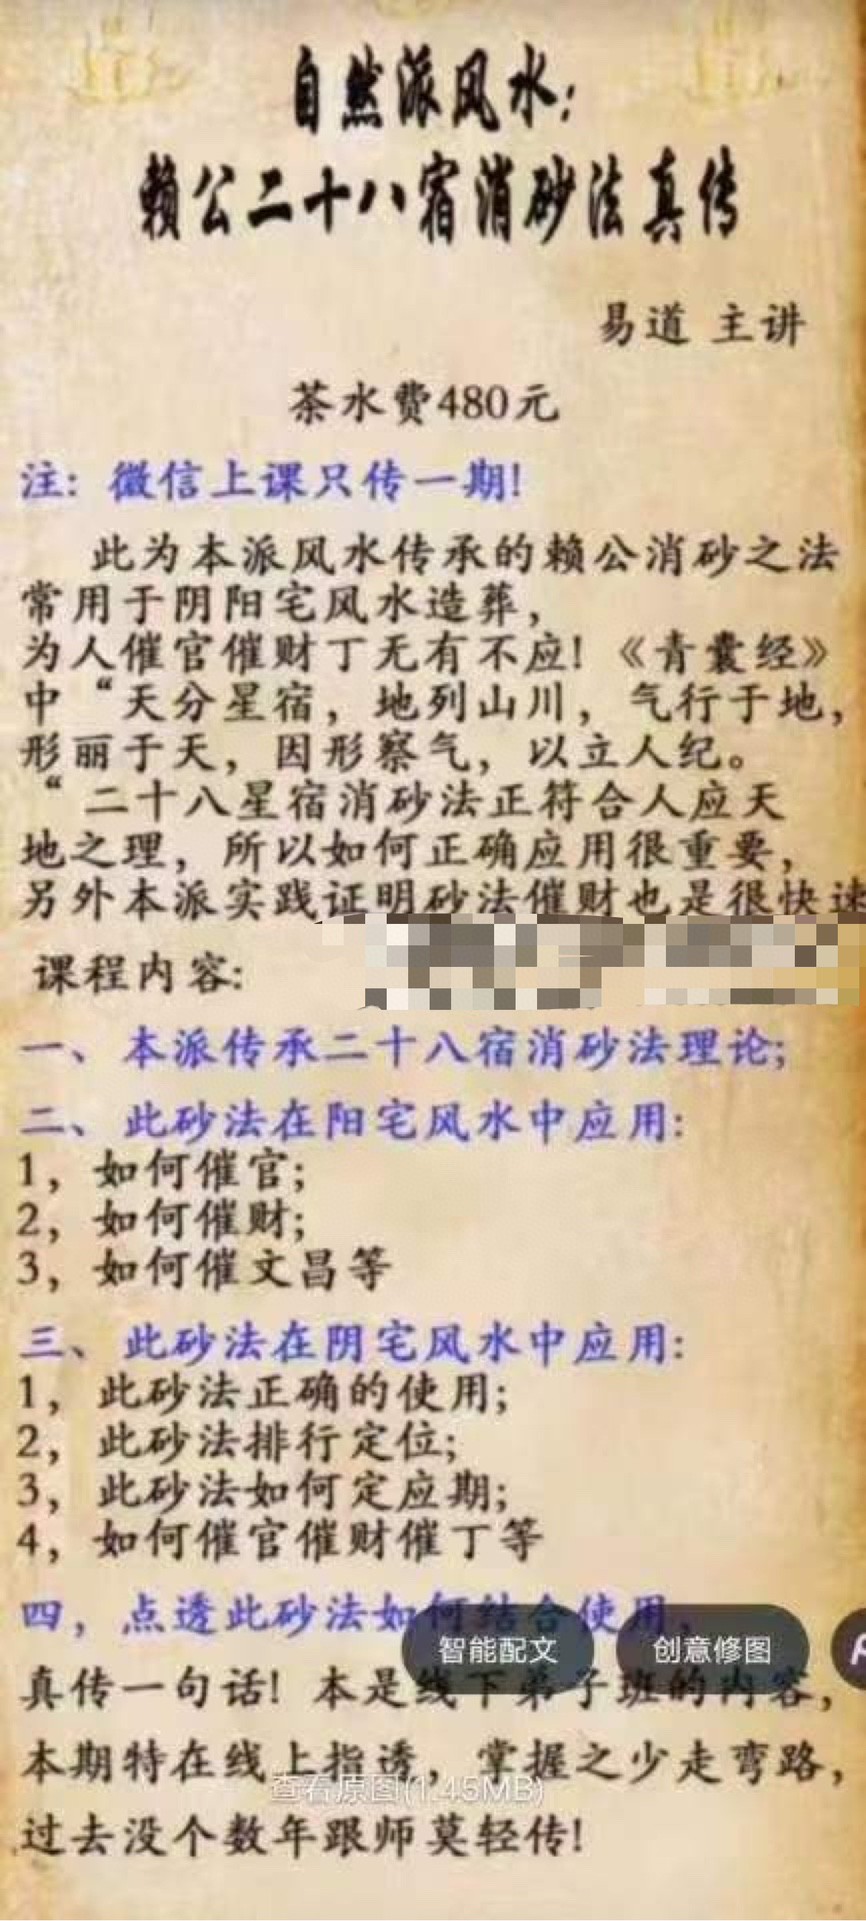 自然派风水：
赖公二十八宿消砂法真传
易道 主讲
茶水费480元
注：微信上课只传一期！
此为本派风水传承的赖公消砂之法
常用于阴阳宅风水造葬，
为人催官催财丁无有不应！《青囊经》
中“天分星宿，地列山川，气行于地，
形丽于天，因形察气，以立人纪。
“二十八星宿消砂法正符合人应天
地之理，所以如何正确应用很重要，
另外本派实践证明砂法催财也是很快速
课程内容：
一、本派传承二十八宿消砂法理论；
二、此砂法在阳宅风水中应用：
1，如何催官；
2，如何催财；
3，如何催文昌等
三、此砂法在阴宅风水中应用：
1，此砂法正确的使用；
2，此砂法排行定位；
3，此砂法如何定应期；
4，如何催官催财催丁等
四，点透此砂法如何结合使用，
智能配文
创意修图
真传一句话！本是线下弟子班的内容，
本期特在线上指透，掌握之少走弯路，
查看原图(1.45MB)
过去没个数年跟师莫轻传！